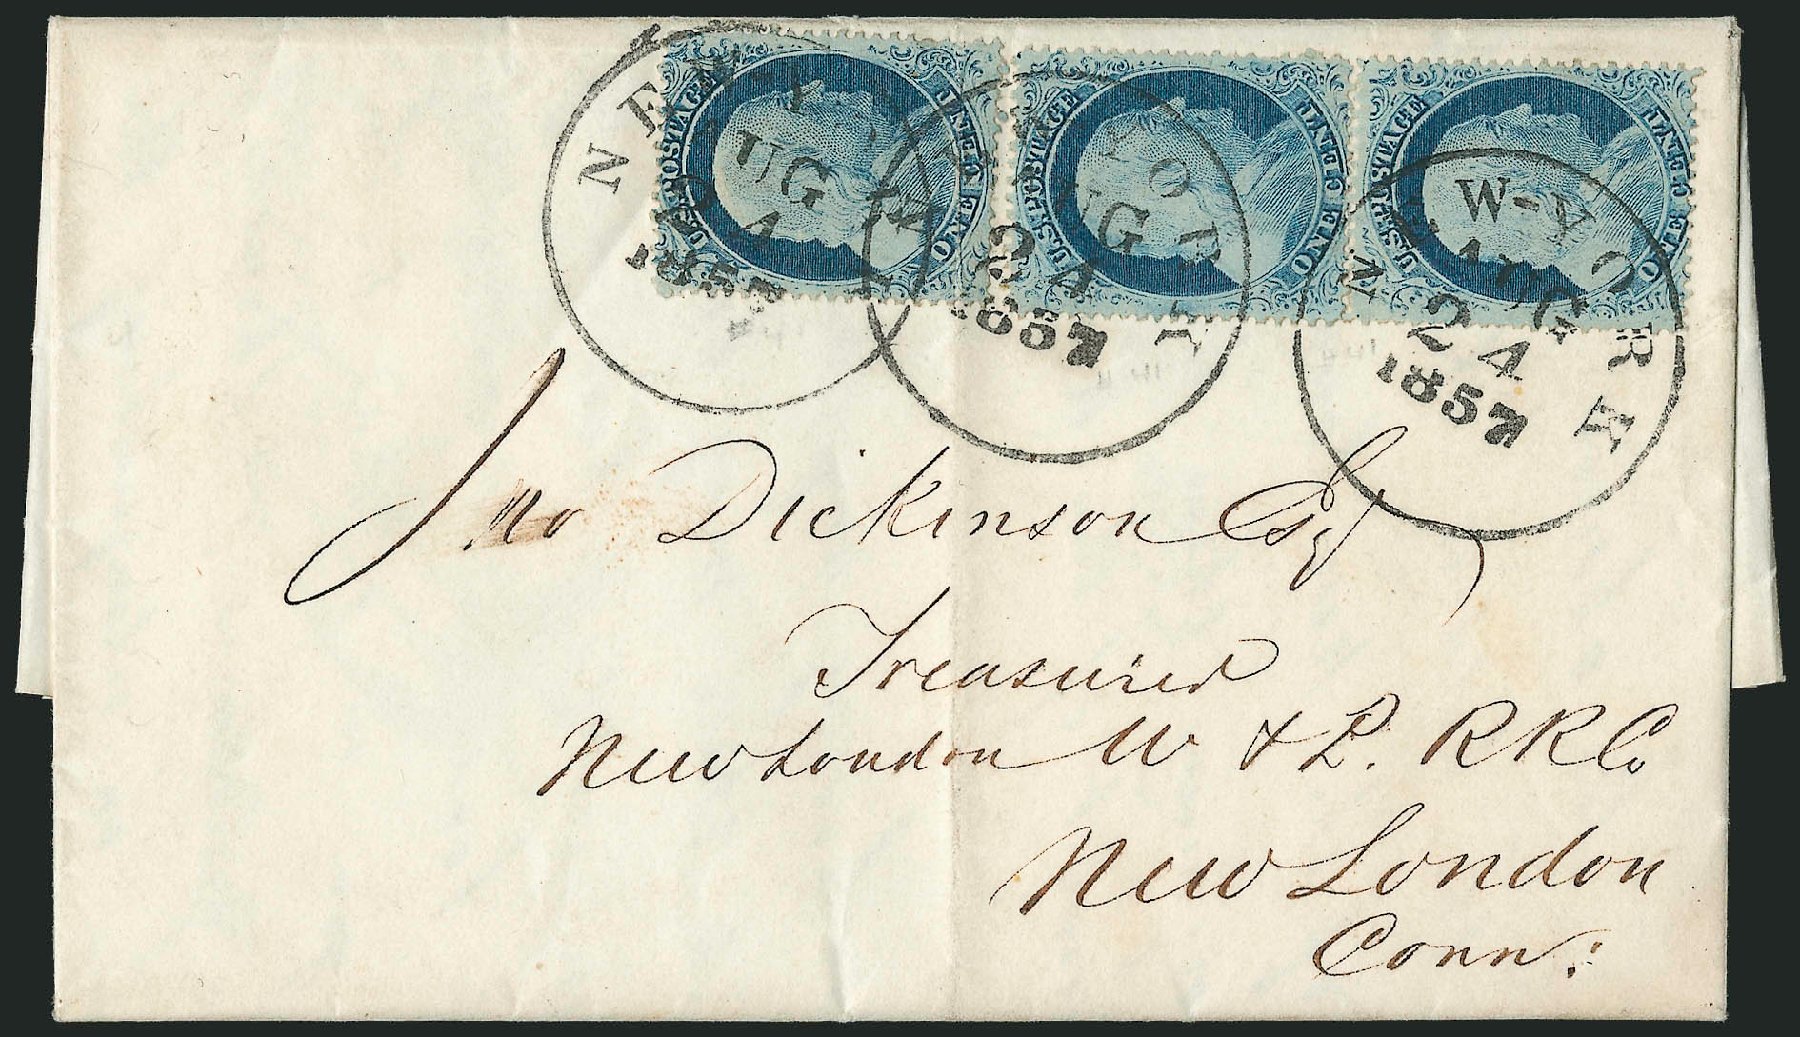 U.S. POSTAGE ONE CENT
U.S. POSTAGE ONE CENT
U.S. POSTAGE ONE CENT
NEW-YORK
AUG
24
1857
NEW-YORK
AUG
24
1857
NEW-YORK
AUG
24
1857
Jno Dickinson Esq
Treasurer
New London W & P. R R Co
New London
Conn: